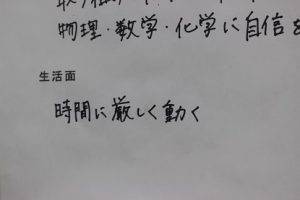 物理・数学・化学に自信を
生活面
時間に厳しく動く